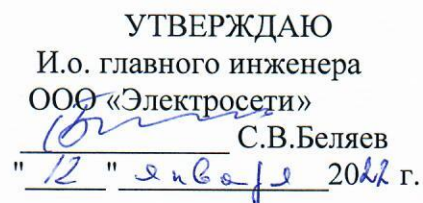 УТВЕРЖДАЮ
И.о. главного инженера
ООО «Электросети»
С.В.Беляев
"12" января 2022 г.